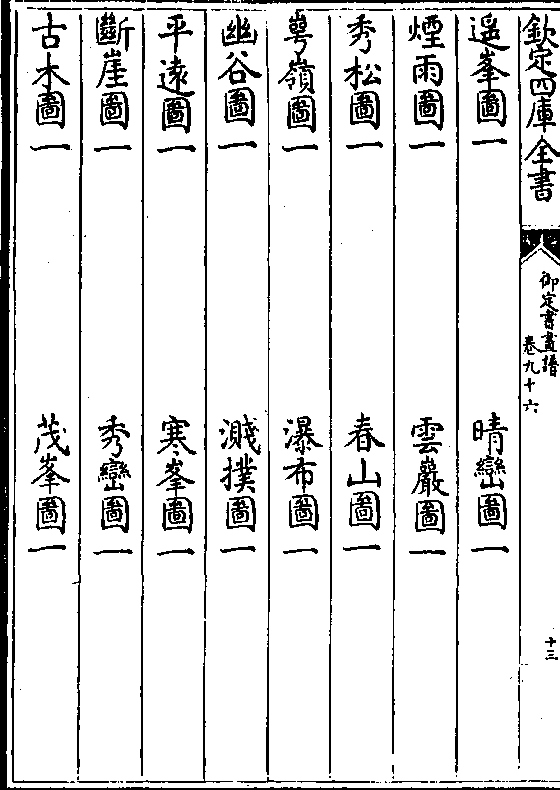 欽定四庫全書
御定書畫譜
卷九十六
十三
遥峯圖一 晴巒圖一
煙雨圖一 雲巖圖一
秀松圖一 春山圖一
咢嶺圖一 瀑布圖一
幽谷圖一 濺撲圖一
平遠圖一 寒峯圖一
斷崖圖一 秀巒圖一
古木圖一 茂峯圖一